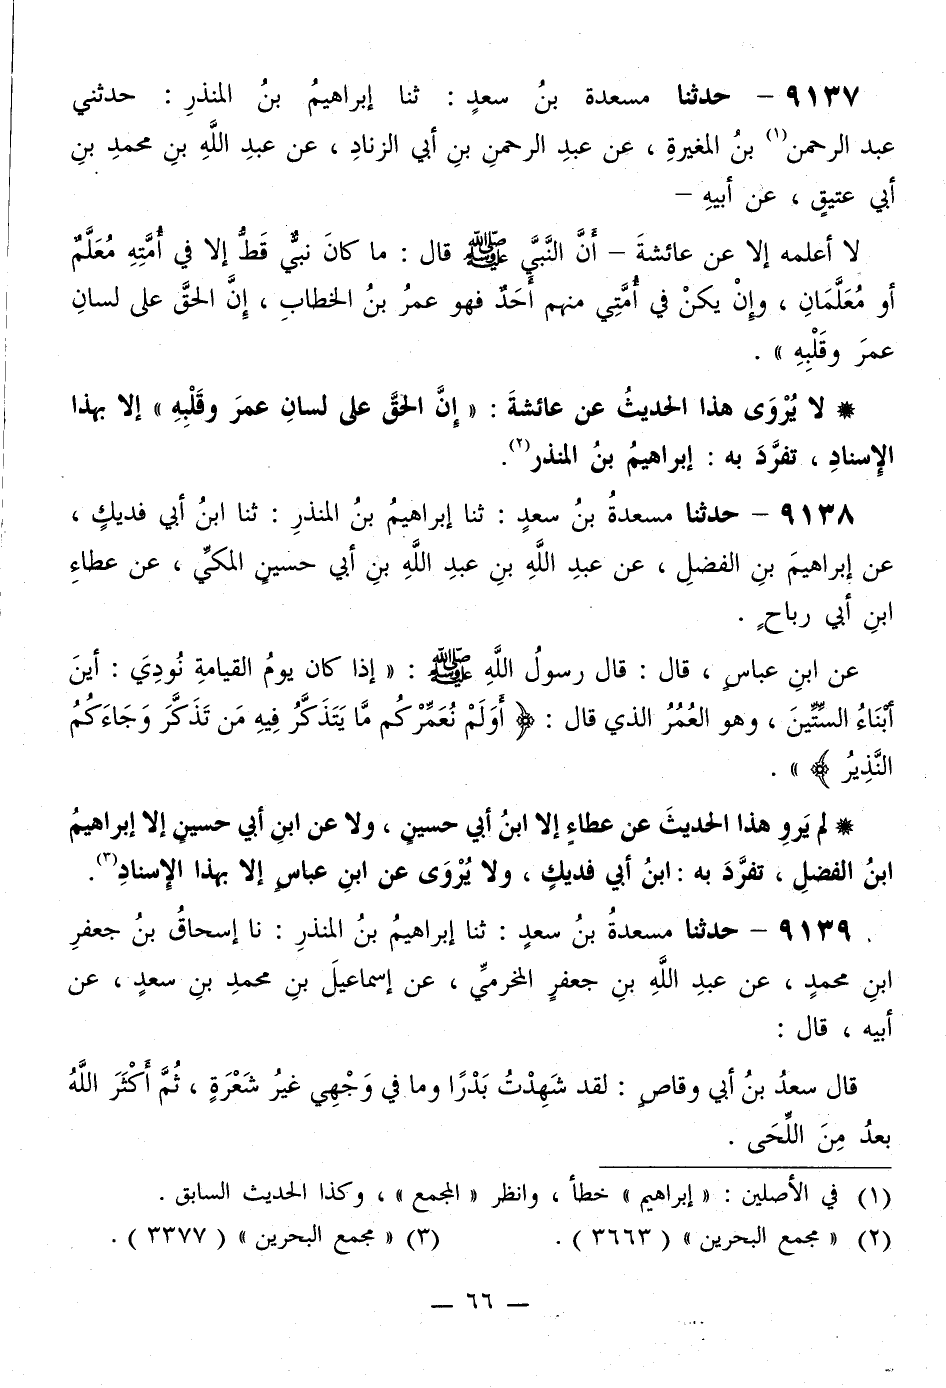 ٩١٣٧ – حدثنا مسعدة بنُ سعدٍ : ثنا إبراهيمُ بنُ المنذرِ : حدثني
عبد الرحمن(١) بنُ المغيرةِ ، عن عبدِ الرحمنِ بنِ أبي الزنادِ ، عن عبدِ اللَّهِ بنِ محمدِ بنِ
أبي عتيقٍ ، عن أبيهِ –
لا أعلمه إلا عن عائشةَ – أَنَّ النَّبيَّ ﷺ قال : ما كانَ نبيٌّ قَطُّ إلا في أُمَّتِهِ مُعَلَّمٌ
أو مُعَلَّمَانِ ، وإنْ يكنْ في أُمَّتِي منهم أَحَدٌ فهو عمرُ بنُ الخطابِ ، إنَّ الحقَّ على لسانِ
عمرَ وقَلْبِهِ » .
* لا يُرْوَى هذا الحديثُ عن عائشةَ : « إنَّ الحقَّ على لسانِ عمرَ وقَلْبِهِ » إلا بهذا
الإسنادِ ، تفرَّدَ به : إبراهيمُ بنُ المنذر(٢).
٩١٣٨ – حدثنا مسعدةُ بنُ سعدٍ : ثنا إبراهيمُ بنُ المنذرِ : ثنا ابنُ أبي فديكٍ ،
عن إبراهيمَ بنِ الفضلِ ، عن عبدِ اللَّهِ بنِ عبدِ اللَّهِ بنِ أبي حسينٍ المكيِّ ، عن عطاءِ
ابنِ أبي رباحٍ .
عن ابنِ عباسٍ ، قال : قال رسولُ اللَّهِ ﷺ : « إذا كان يومُ القيامةِ نُودِيَ : أينَ
أَبْنَاءُ السِّتِّينَ ، وهو العُمُرُ الذي قال : ﴿ أَوَلَمْ نُعَمِّرْكُم مَّا يَتَذَكَّرُ فِيهِ مَن تَذَكَّرَ وَجَاءَكُمُ
النَّذِيرُ ﴾ » .
* لم يَروِ هذا الحديثَ عن عطاءٍ إلا ابنُ أبي حسينٍ ، ولا عن ابنِ أبي حسينٍ إلا إبراهيمُ
ابنُ الفضلِ ، تفرَّدَ به : ابنُ أبي فديكٍ ، ولا يُرْوَى عن ابنِ عباسٍ إلا بهذا الإسنادِ(٣).
٩١٣٩ – حدثنا مسعدةُ بنُ سعدٍ : ثنا إبراهيمُ بنُ المنذرِ : نا إسحاقُ بنُ جعفرِ
ابنِ محمدٍ ، عن عبدِ اللَّهِ بنِ جعفرٍ المخرميِّ ، عن إسماعيلَ بنِ محمدِ بنِ سعدٍ ، عن
أبيه ، قال :
قال سعدُ بنُ أبي وقاصٍ : لقد شَهِدْتُ بَدْرًا وما في وَجْهِي غيرُ شَعْرَةٍ ، ثُمَّ أَكْثَرَ اللَّهُ
بعدُ مِنَ اللِّحَى .
(١) في الأصلين : « إبراهيم » خطأ ، وانظر « المجمع » ، وكذا الحديث السابق .
(٢) « مجمع البحرين » ( ٣٦٦٣ ) . (٣) « مجمع البحرين » ( ٣٣٧٧ ) .
— ٦٦ —